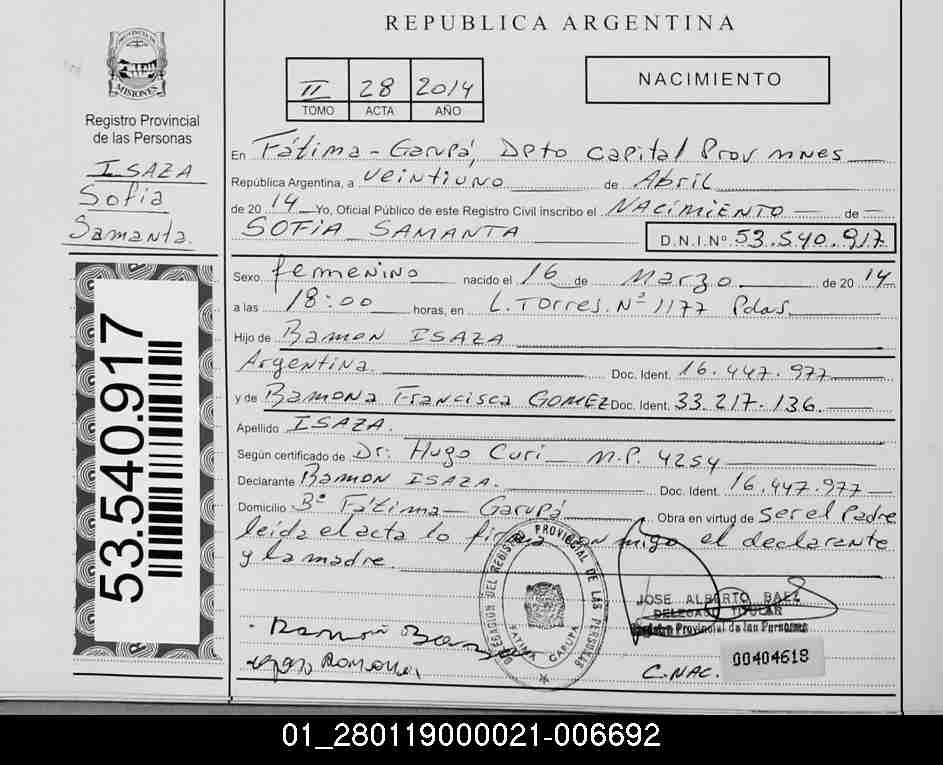 REPUBLICA ARGENTINA
PROVINCIA DE
MISIONES
Registro Provincial
de las Personas
ISAZA
Sofia
Samanta.
53.540.917
II 28 2014
TOMO ACTA AÑO
NACIMIENTO
En Fátima - Garupá, Dpto Capital Prov mnes
República Argentina, a veintiuno de Abril
de 2014 Yo, Oficial Público de este Registro Civil inscribo el NACIMIENTO de
SOFIA SAMANTA D.N.I.Nº 53.540.917
Sexo femenino nacido el 16 de Marzo de 2014
a las 18:00 horas, en L. Torres. Nº 1177 Pdas.
Hijo de Ramon ISAZA
Argentina. Doc. Ident. 16.447.977
y de Ramona Francisca GOMEZ Doc. Ident. 33.217.136.
Apellido ISAZA.
Según certificado de Dr: Hugo Curi M.P. 4254
Declarante Ramon ISAZA. Doc. Ident. 16.447.977
Domicilio Bº Fátima - Garupá Obra en virtud de Ser el Padre
leída el acta lo firma conmigo el declarante
y la madre.
DELEGACION DEL REGISTRO PROVINCIAL DE LAS PERSONAS
FATIMA GARUPA
JOSE ALBERTO BAEZ
DELEGADO TITULAR
Registro Provincial de las Personas
Ramon
Ramona
C.NAC. 00404618
01_280119000021-006692